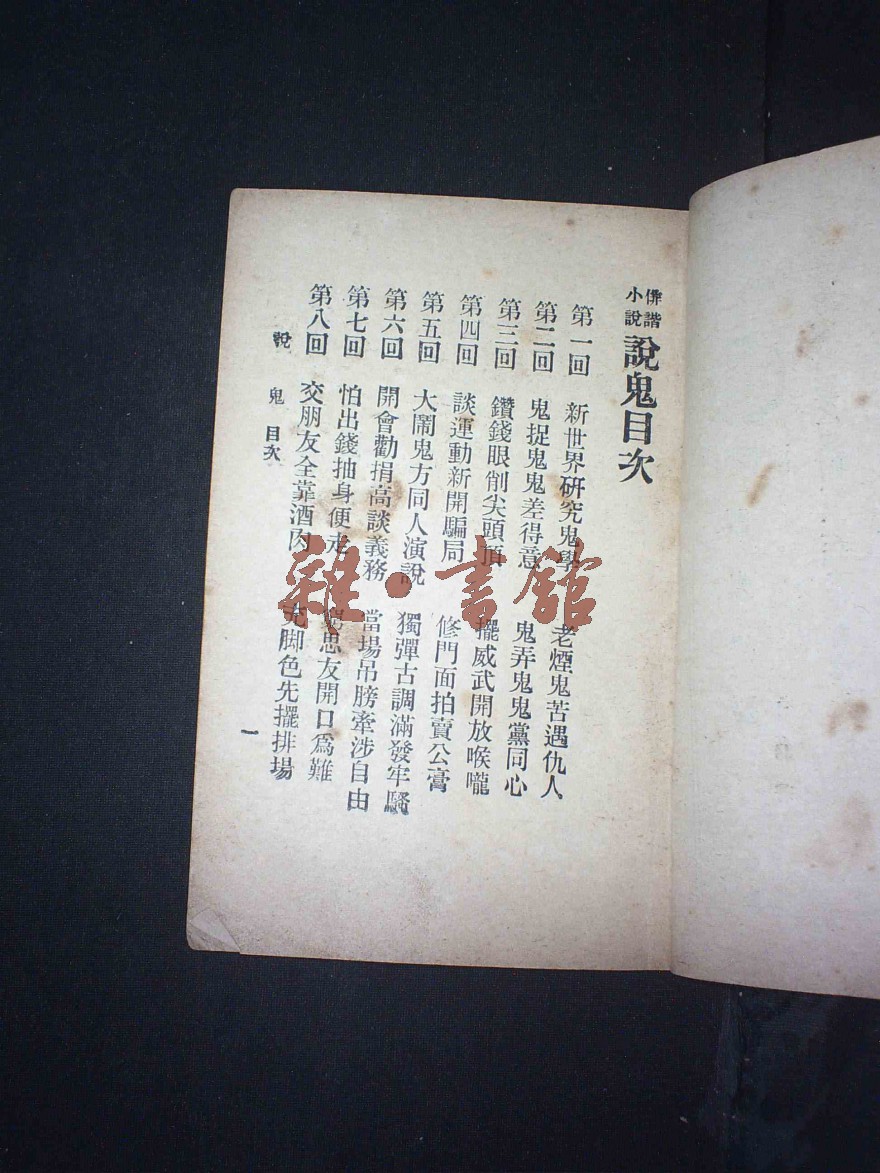 俳諧小說 說鬼目次
第一回 新世界研究鬼學 老煙鬼苦遇仇人
第二回 鬼捉鬼鬼差得意 鬼弄鬼鬼黨同心
第三回 鑽錢眼削尖頭頂 擺威武開放喉嚨
第四回 談運動新開騙局 修門面拍賣公膏
第五回 大鬧鬼方同人演說 獨彈古調滿發牢騷
第六回 開會勸捐高談義務 當場吊膀牽涉自由
第七回 怕出錢抽身便走 思友開口爲難
第八回 交朋友全靠酒肉 充脚色先擺排場
說鬼 目次
一
雜·書館